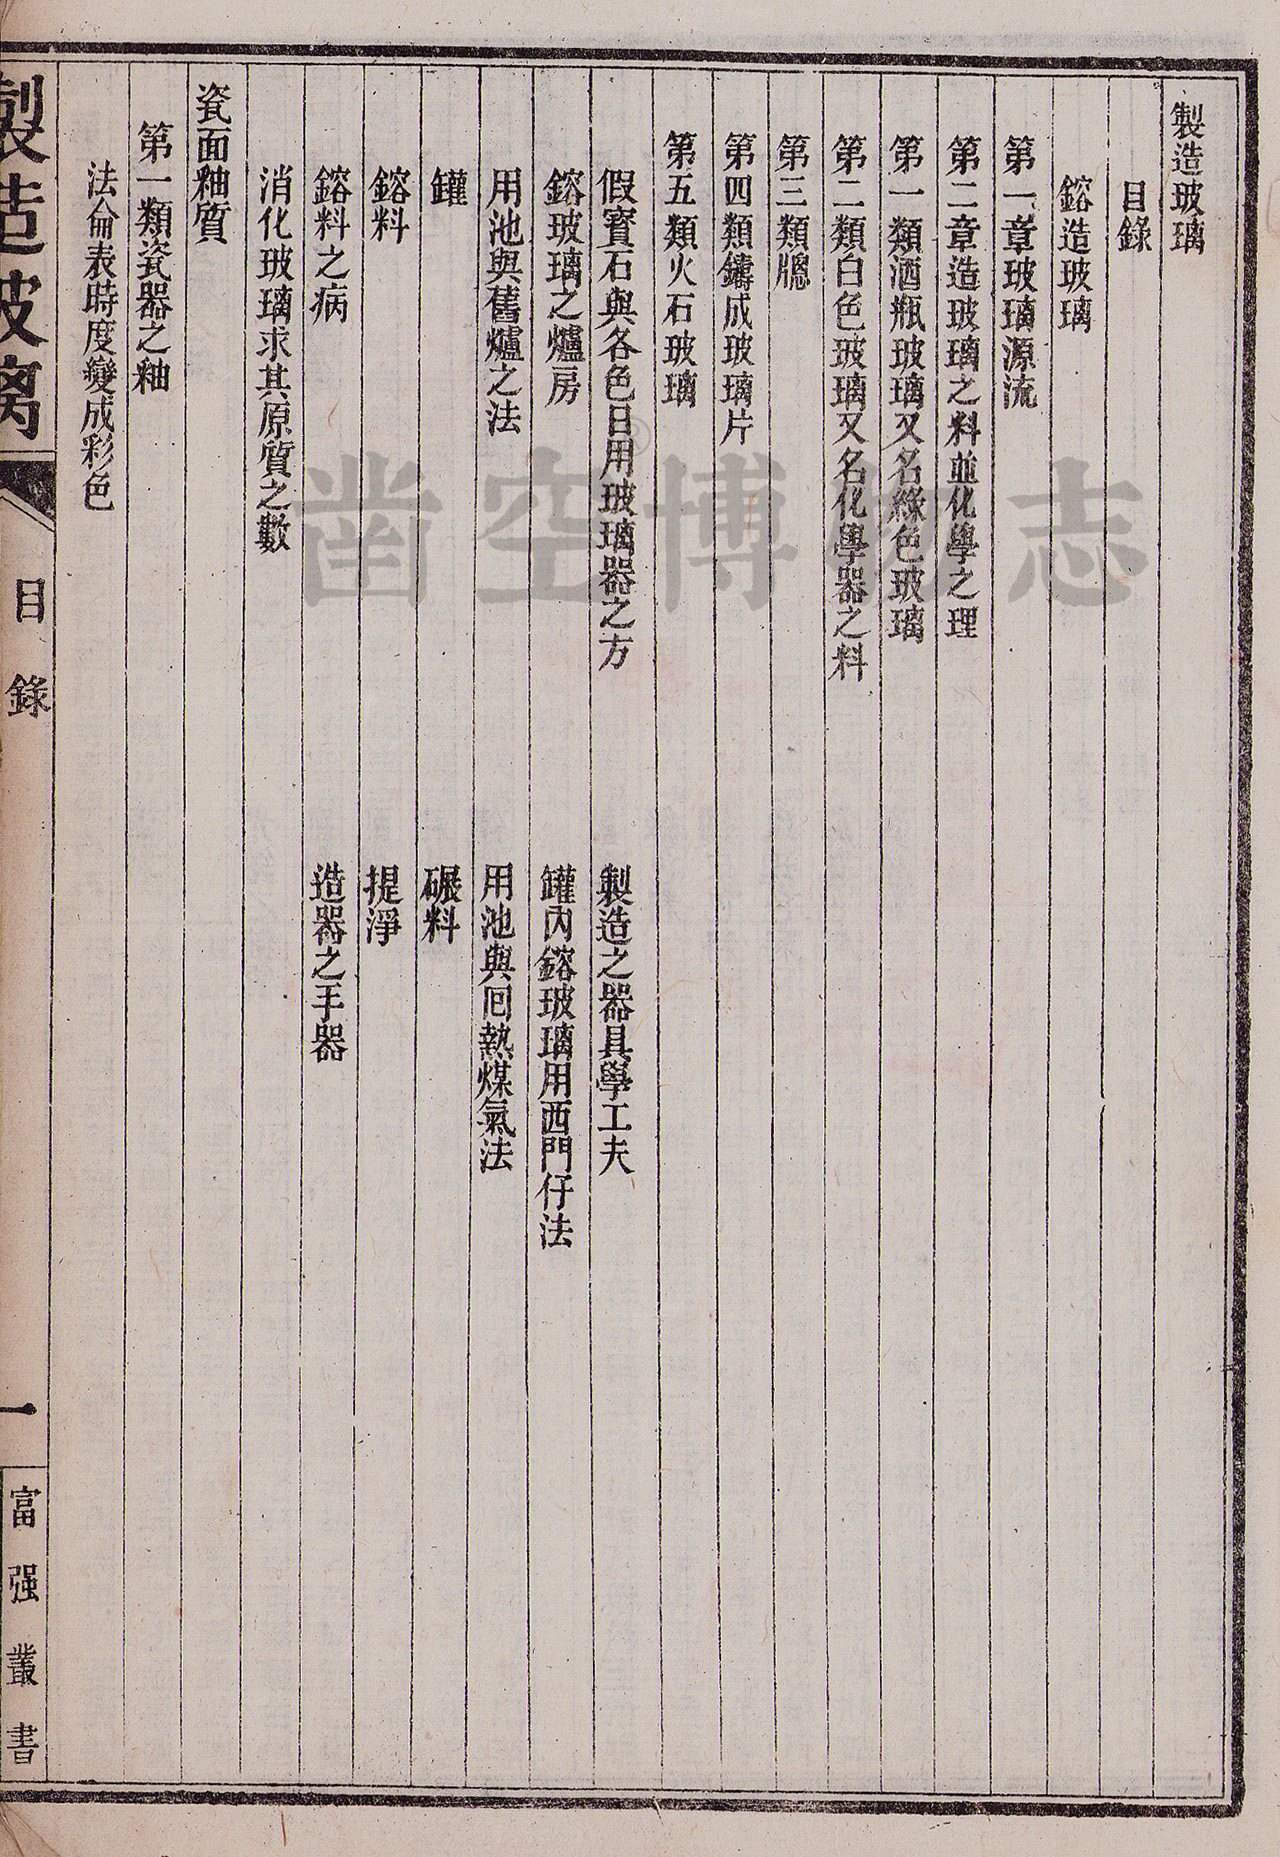 製造玻璃
目錄
鎔造玻璃
第一章玻璃源流
第二章造玻璃之料並化學之理
第一類酒瓶玻璃又名綠色玻璃
第二類白色玻璃又名化學器之料
第三類牕
第四類鑄成玻璃片
第五類火石玻璃
假寶石與各色日用玻璃器之方
製造之器具學工夫
鎔玻璃之爐房
罐內鎔玻璃用西門仔法
用池與舊爐之法
用池與囘熱煤氣法
罐
碾料
鎔料
提淨
鎔料之病
造器之手器
消化玻璃求其原質之數
瓷面釉質
第一類瓷器之釉
法倫表時度變成彩色
製造玻璃
目錄
一
富强叢書
鑿空博物志